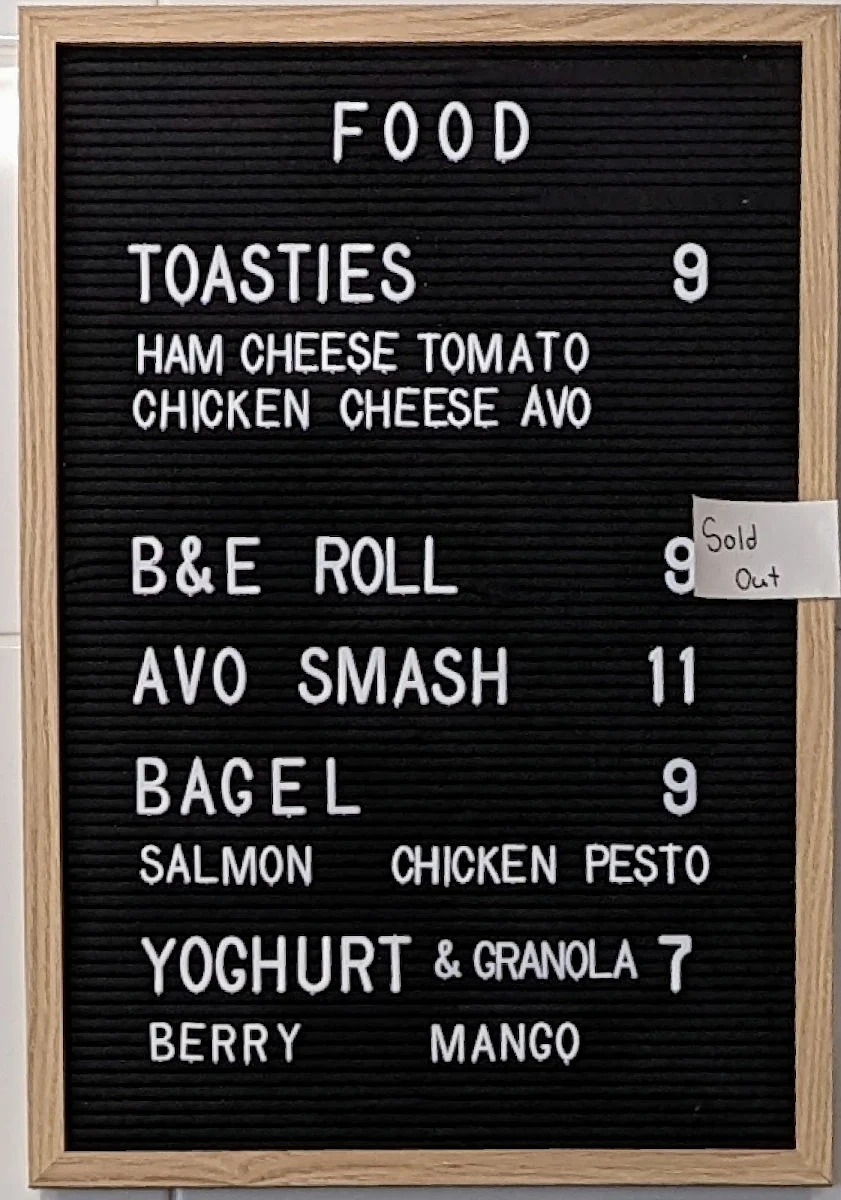 FOOD
TOASTIES 9
HAM CHEESE TOMATO
CHICKEN CHEESE AVO
B&E ROLL 9
Sold
Out
AVO SMASH 11
BAGEL 9
SALMON CHICKEN PESTO
YOGHURT & GRANOLA 7
BERRY MANGO